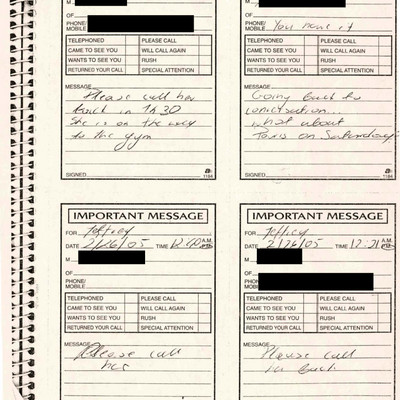 M
OF
PHONE/
MOBILE
TELEPHONED PLEASE CALL
CAME TO SEE YOU WILL CALL AGAIN
WANTS TO SEE YOU RUSH
RETURNED YOUR CALL SPECIAL ATTENTION
MESSAGE
Please call her
back in 1h30
She is on the way
to the gym
SIGNED 1184
M
OF
PHONE/
MOBILE You have it
TELEPHONED PLEASE CALL
CAME TO SEE YOU WILL CALL AGAIN
WANTS TO SEE YOU RUSH
RETURNED YOUR CALL SPECIAL ATTENTION
MESSAGE
Going back to
conversation...
what about
Paris on Saturday?
SIGNED 1184
IMPORTANT MESSAGE
FOR Jeffrey
DATE 2/26/05 TIME A.M. P.M.
M
OF
PHONE/
MOBILE
TELEPHONED PLEASE CALL
CAME TO SEE YOU WILL CALL AGAIN
WANTS TO SEE YOU RUSH
RETURNED YOUR CALL SPECIAL ATTENTION
MESSAGE
Please call
her
IMPORTANT MESSAGE
FOR Jeffrey
DATE 2/26/05 TIME 12:21 A.M. P.M.
M
OF
PHONE/
MOBILE
TELEPHONED PLEASE CALL
CAME TO SEE YOU WILL CALL AGAIN
WANTS TO SEE YOU RUSH
RETURNED YOUR CALL SPECIAL ATTENTION
MESSAGE
Please call
back